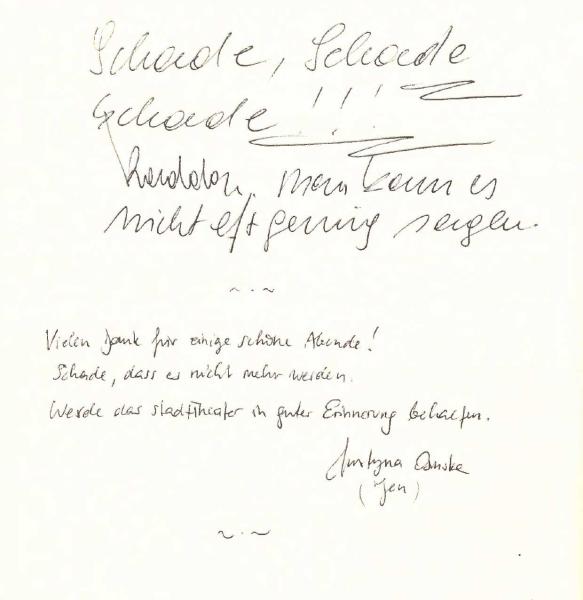 Schade, Schade
Schade !!!
man kann es
nicht oft genug sagen.
~ . ~
Vielen Dank für einige schöne Abende!
Schade, dass es nicht mehr werden.
Werde das Stadttheater in guter Erinnerung behalten.
Justyna
(Jen)
~ . ~